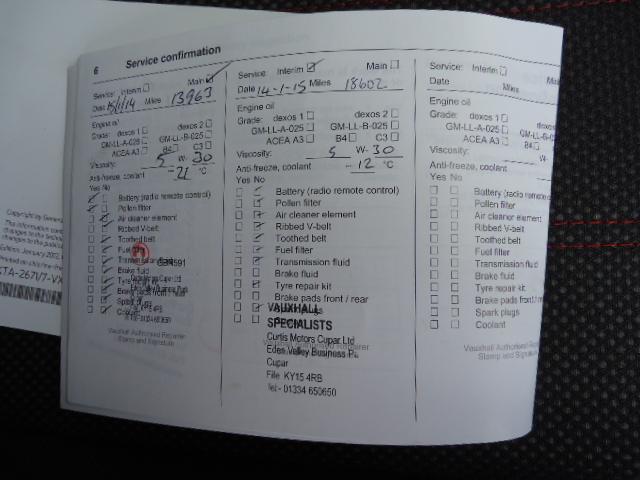 6 Service confirmation
Service: Interim Main
Date Miles 13963
Engine oil
Grade: dexos 1 dexos 2
GM-LL-A-025 GM-LL-B-025
ACEA A3 B4 C3
Viscosity: 5 W- 30
Anti-freeze, coolant
-21 °C
Yes No
Battery (radio remote control)
Pollen filter
Air cleaner element
Ribbed V-belt
Toothed belt
Fuel
Brake fluid
Vauxhall Authorised Repairer
Stamp and Signature
Service: Interim Main
Date 14-1-15 Miles 18602
Engine oil
Grade: dexos 1 dexos 2
GM-LL-A-025 GM-LL-B-025
ACEA A3 B4 C3
Viscosity: 5 W- 30
Anti-freeze, coolant -12 °C
Yes No
Battery (radio remote control)
Pollen filter
Air cleaner element
Ribbed V-belt
Toothed belt
Fuel filter
Transmission fluid
Brake fluid
Tyre repair kit
Brake pads front / rear
VAUXHALL
SPECIALISTS
Curtis Motors Cupar Ltd
Eden Valley Business
Cupar
Fife KY15 4RB
Tel:- 01334 650650
Service: Interim
Date Miles
Engine oil
Grade: dexos 1
GM-LL-A-025 GM-LL-B-025
ACEA A3 B4
Viscosity: W-
Anti-freeze, coolant
Yes No
Battery (radio remote control)
Pollen filter
Air cleaner element
Ribbed V-belt
Toothed belt
Fuel filter
Transmission fluid
Brake fluid
Tyre repair kit
Brake pads front /
Spark plugs
Coolant
Vauxhall Authorised Repairer
Stamp and Signature